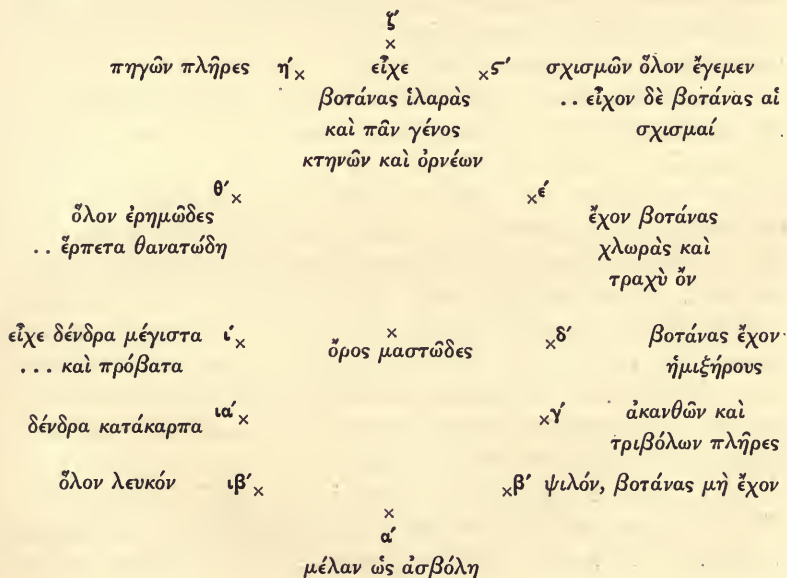 ζ′
×
πηγῶν πλῆρες η′× εἶχε ×ϛ′ σχισμῶν ὅλον ἔγεμεν
βοτάνας ἱλαρὰς . . εἶχον δὲ βοτάνας αἱ
καὶ πᾶν γένος σχισμαί
κτηνῶν καὶ ὀρνέων
θ′× ×ε′
ὅλον ἐρημῶδες ἔχον βοτάνας
. . ἕρπετα θανατώδη χλωρὰς καὶ
τραχὺ ὄν
εἶχε δένδρα μέγιστα ι′× × ×δ′ βοτάνας ἔχον
. . . καὶ πρόβατα ὄρος μαστῶδες ἡμιξήρους
δένδρα κατάκαρπα ια′× ×γ′ ἀκανθῶν καὶ
τριβόλων πλῆρες
ὅλον λευκόν ιβ′× ×β′ ψιλόν, βοτάνας μὴ ἔχον
×
α′
μέλαν ὡς ἀσβόλη